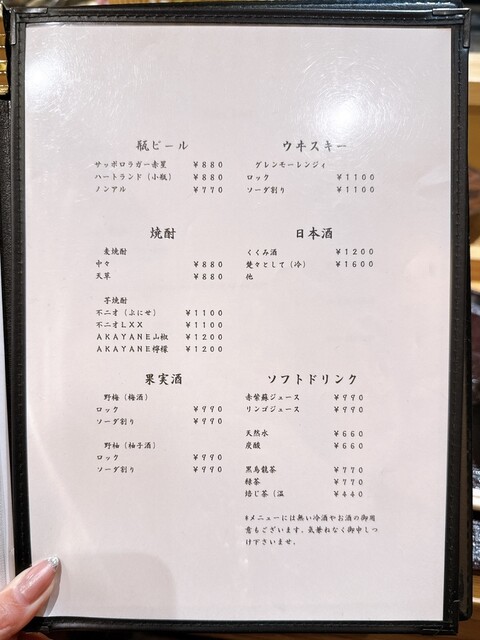 瓶ビール
サッポロラガー赤星 ¥880
ハートランド（小瓶） ¥880
ノンアル ¥770
ウヰスキー
グレンモーレンジィ
ロック ¥1100
ソーダ割り ¥1100
焼酎
麦焼酎
中々 ¥880
天草 ¥880
芋焼酎
不二才（ぶにせ） ¥1100
不二才LXX ¥1100
AKAYANE山椒 ¥1200
AKAYANE檸檬 ¥1200
日本酒
くくみ酒 ¥1200
楚々として（冷） ¥1600
他
果実酒
野梅（梅酒）
ロック ¥990
ソーダ割り ¥990
野柚（柚子酒）
ロック ¥990
ソーダ割り ¥990
ソフトドリンク
赤紫蘇ジュース ¥990
リンゴジュース ¥990
天然水 ¥660
炭酸 ¥660
黒烏龍茶 ¥770
緑茶 ¥770
焙じ茶（温 ¥440
*メニューには無い冷酒やお酒の御用
意もございます。気兼ねなく御申しつ
け下さいませ。